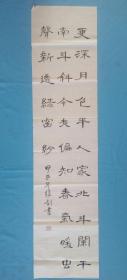 更深月色半人家北斗闌干
南斗斜今夜偏知春氣暖虫
聲新透綠窗紗
甲午書